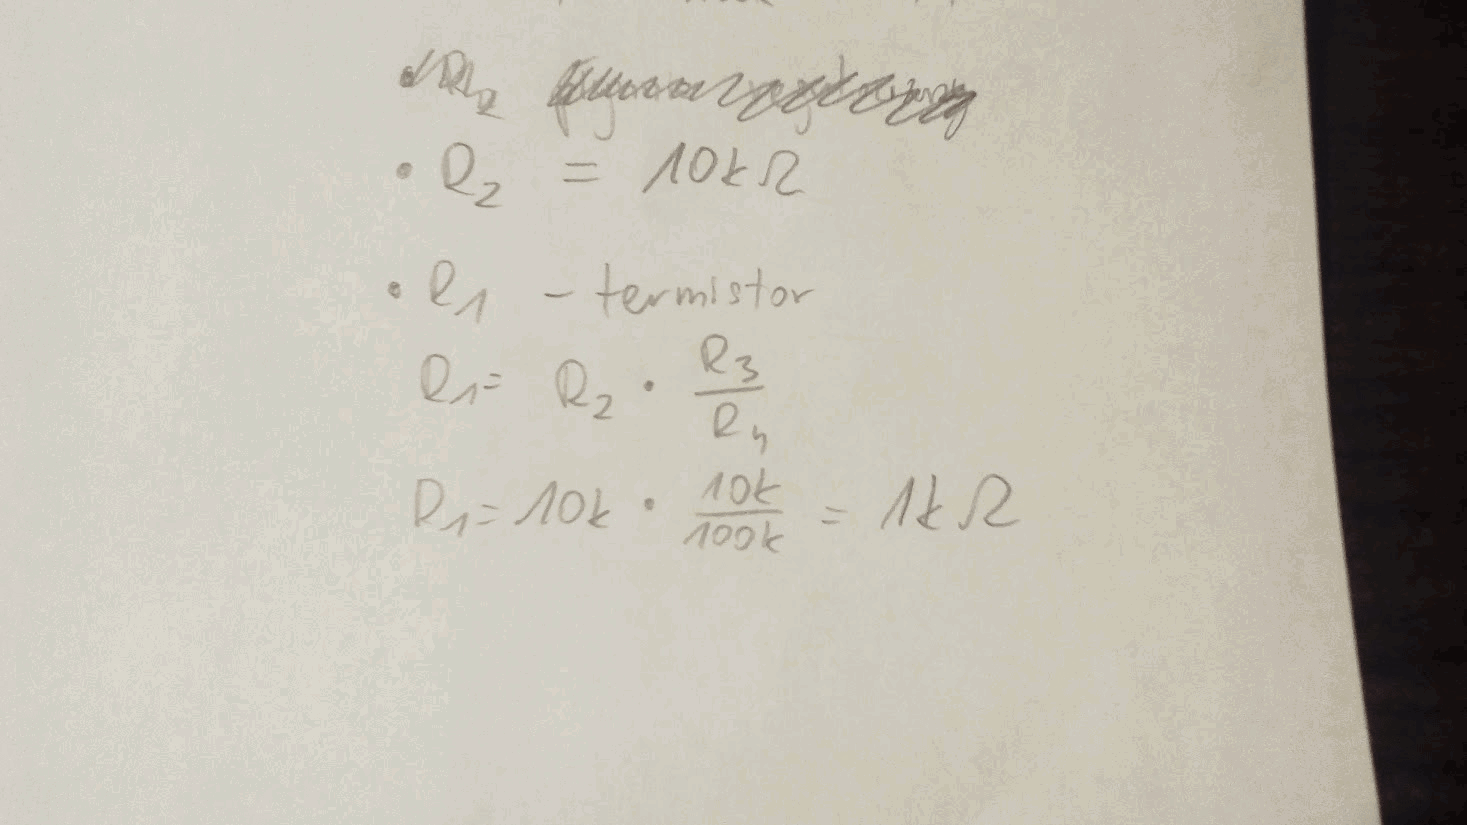 • R2
• R2 = 10kΩ
• R1 - termistor
R1 = R2 · R3/R4
R1 = 10k · 10k/100k = 1kΩ